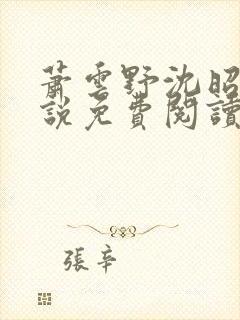 蕭雲野沈昭
說免費閱讀
張辛